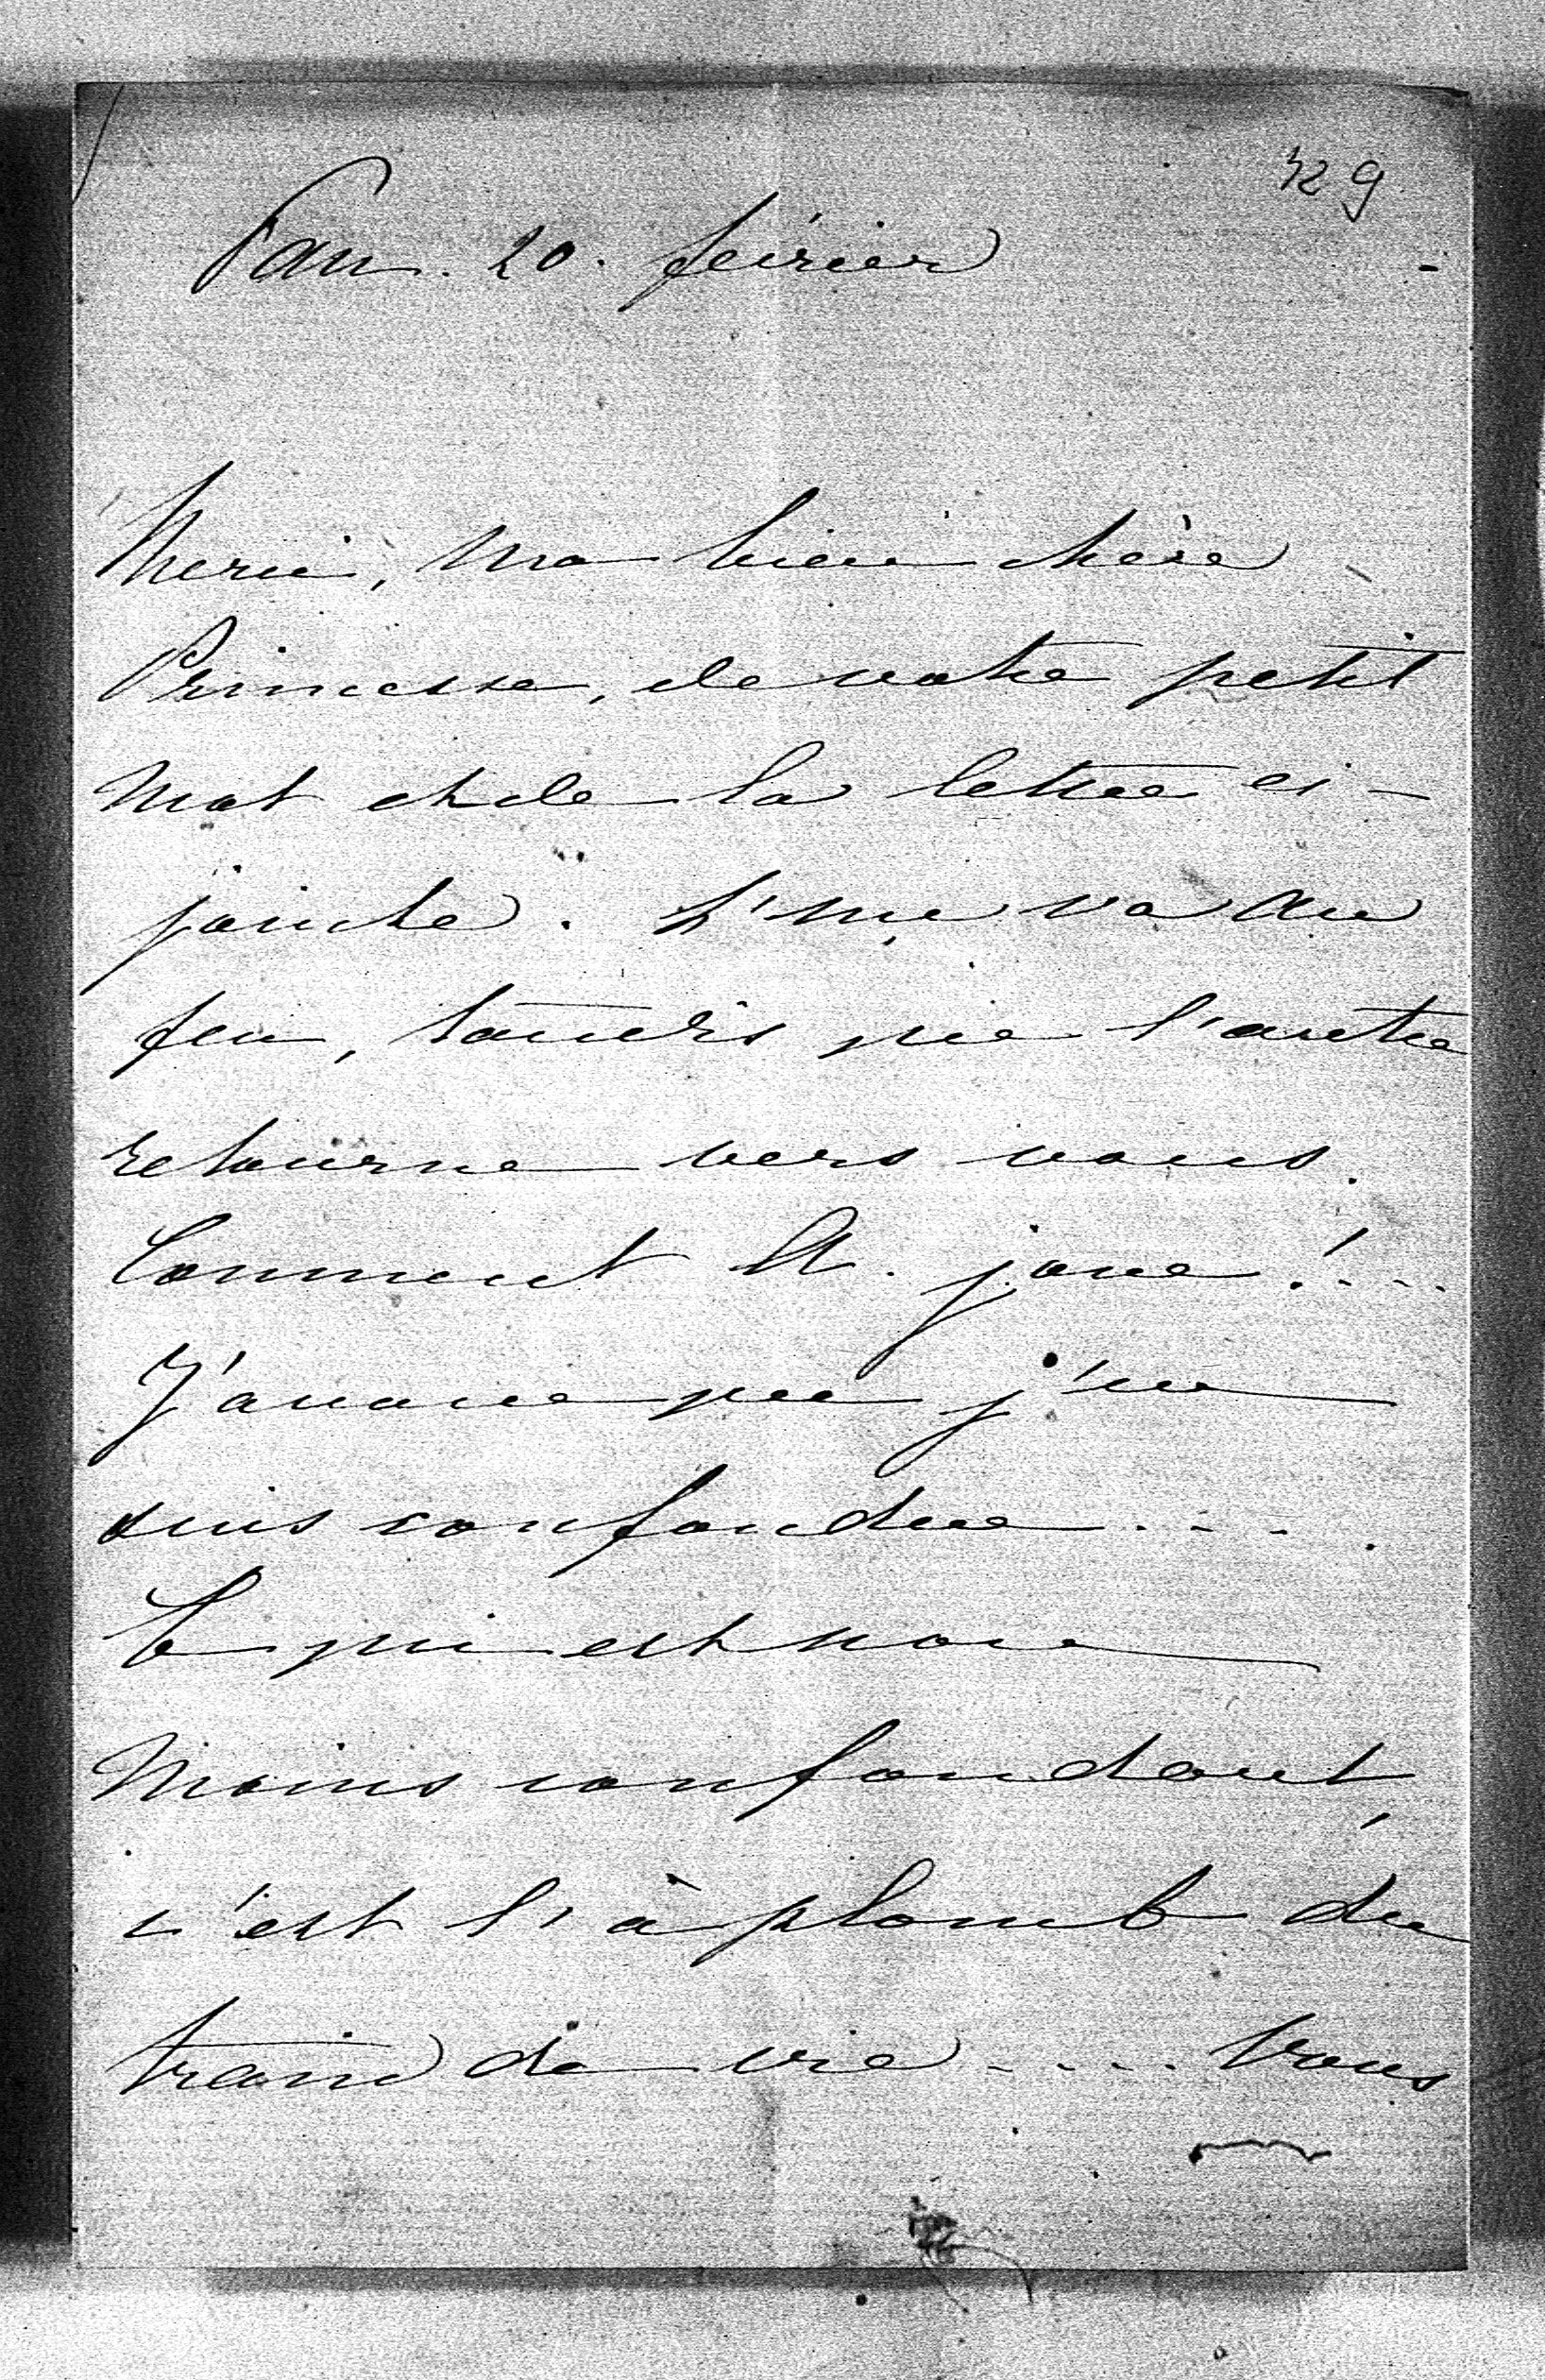 729
Pau. 20. février
Merci, ma bien chère
Princesse, de votre petit
mot et de la lettre ci-
jointe. L'une va au
feu, tandis que l'autre
retourne vers vous.
Comment A. joue!...
J'avoue que j'en
suis confondue....
Ce qui est non
moins confondant,
c'est l'à plomb du
train de vie.... Vous